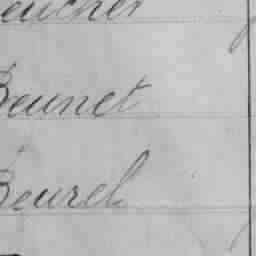 Beucher
Beunet
Beurel